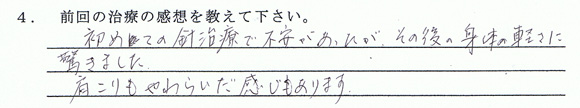 4． 前回の治療の感想を教えて下さい。
初めての針治療で不安があったが、その後の身体の軽さに
驚きました。
肩こりもやわらいだ感じもあります。